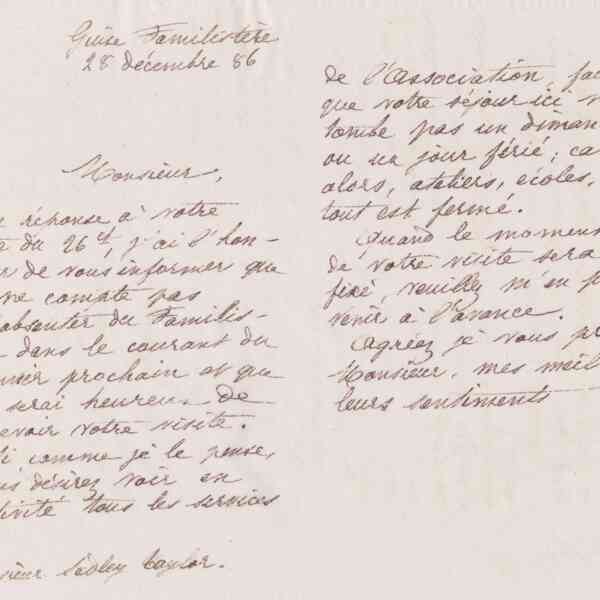 Guise Familistère
28 décembre 86
Monsieur,
réponse à votre
du 26 ct, j'ai l'hon-
de vous informer que
ne compte pas
absenter du Familis-
dans le courant du
prochain et que
serai heureux de
evoir votre visite.
comme je le pense,
désirez voir en
tivité tous les services
sieur Sedley Taylor.
de l'Association, fa
que votre séjour ici n
tombe pas un diman
ou un jour férié; ca
alors, ateliers, écoles,
tout est fermé.
Quand le momen
de votre visite sera
fixé, veuillez m'en p
venir à l'avance.
Agréez je vous pr
Monsieur, mes meil
leurs sentiments